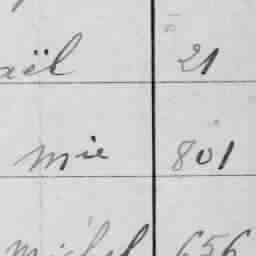 aël 21
mie 801
michel 656